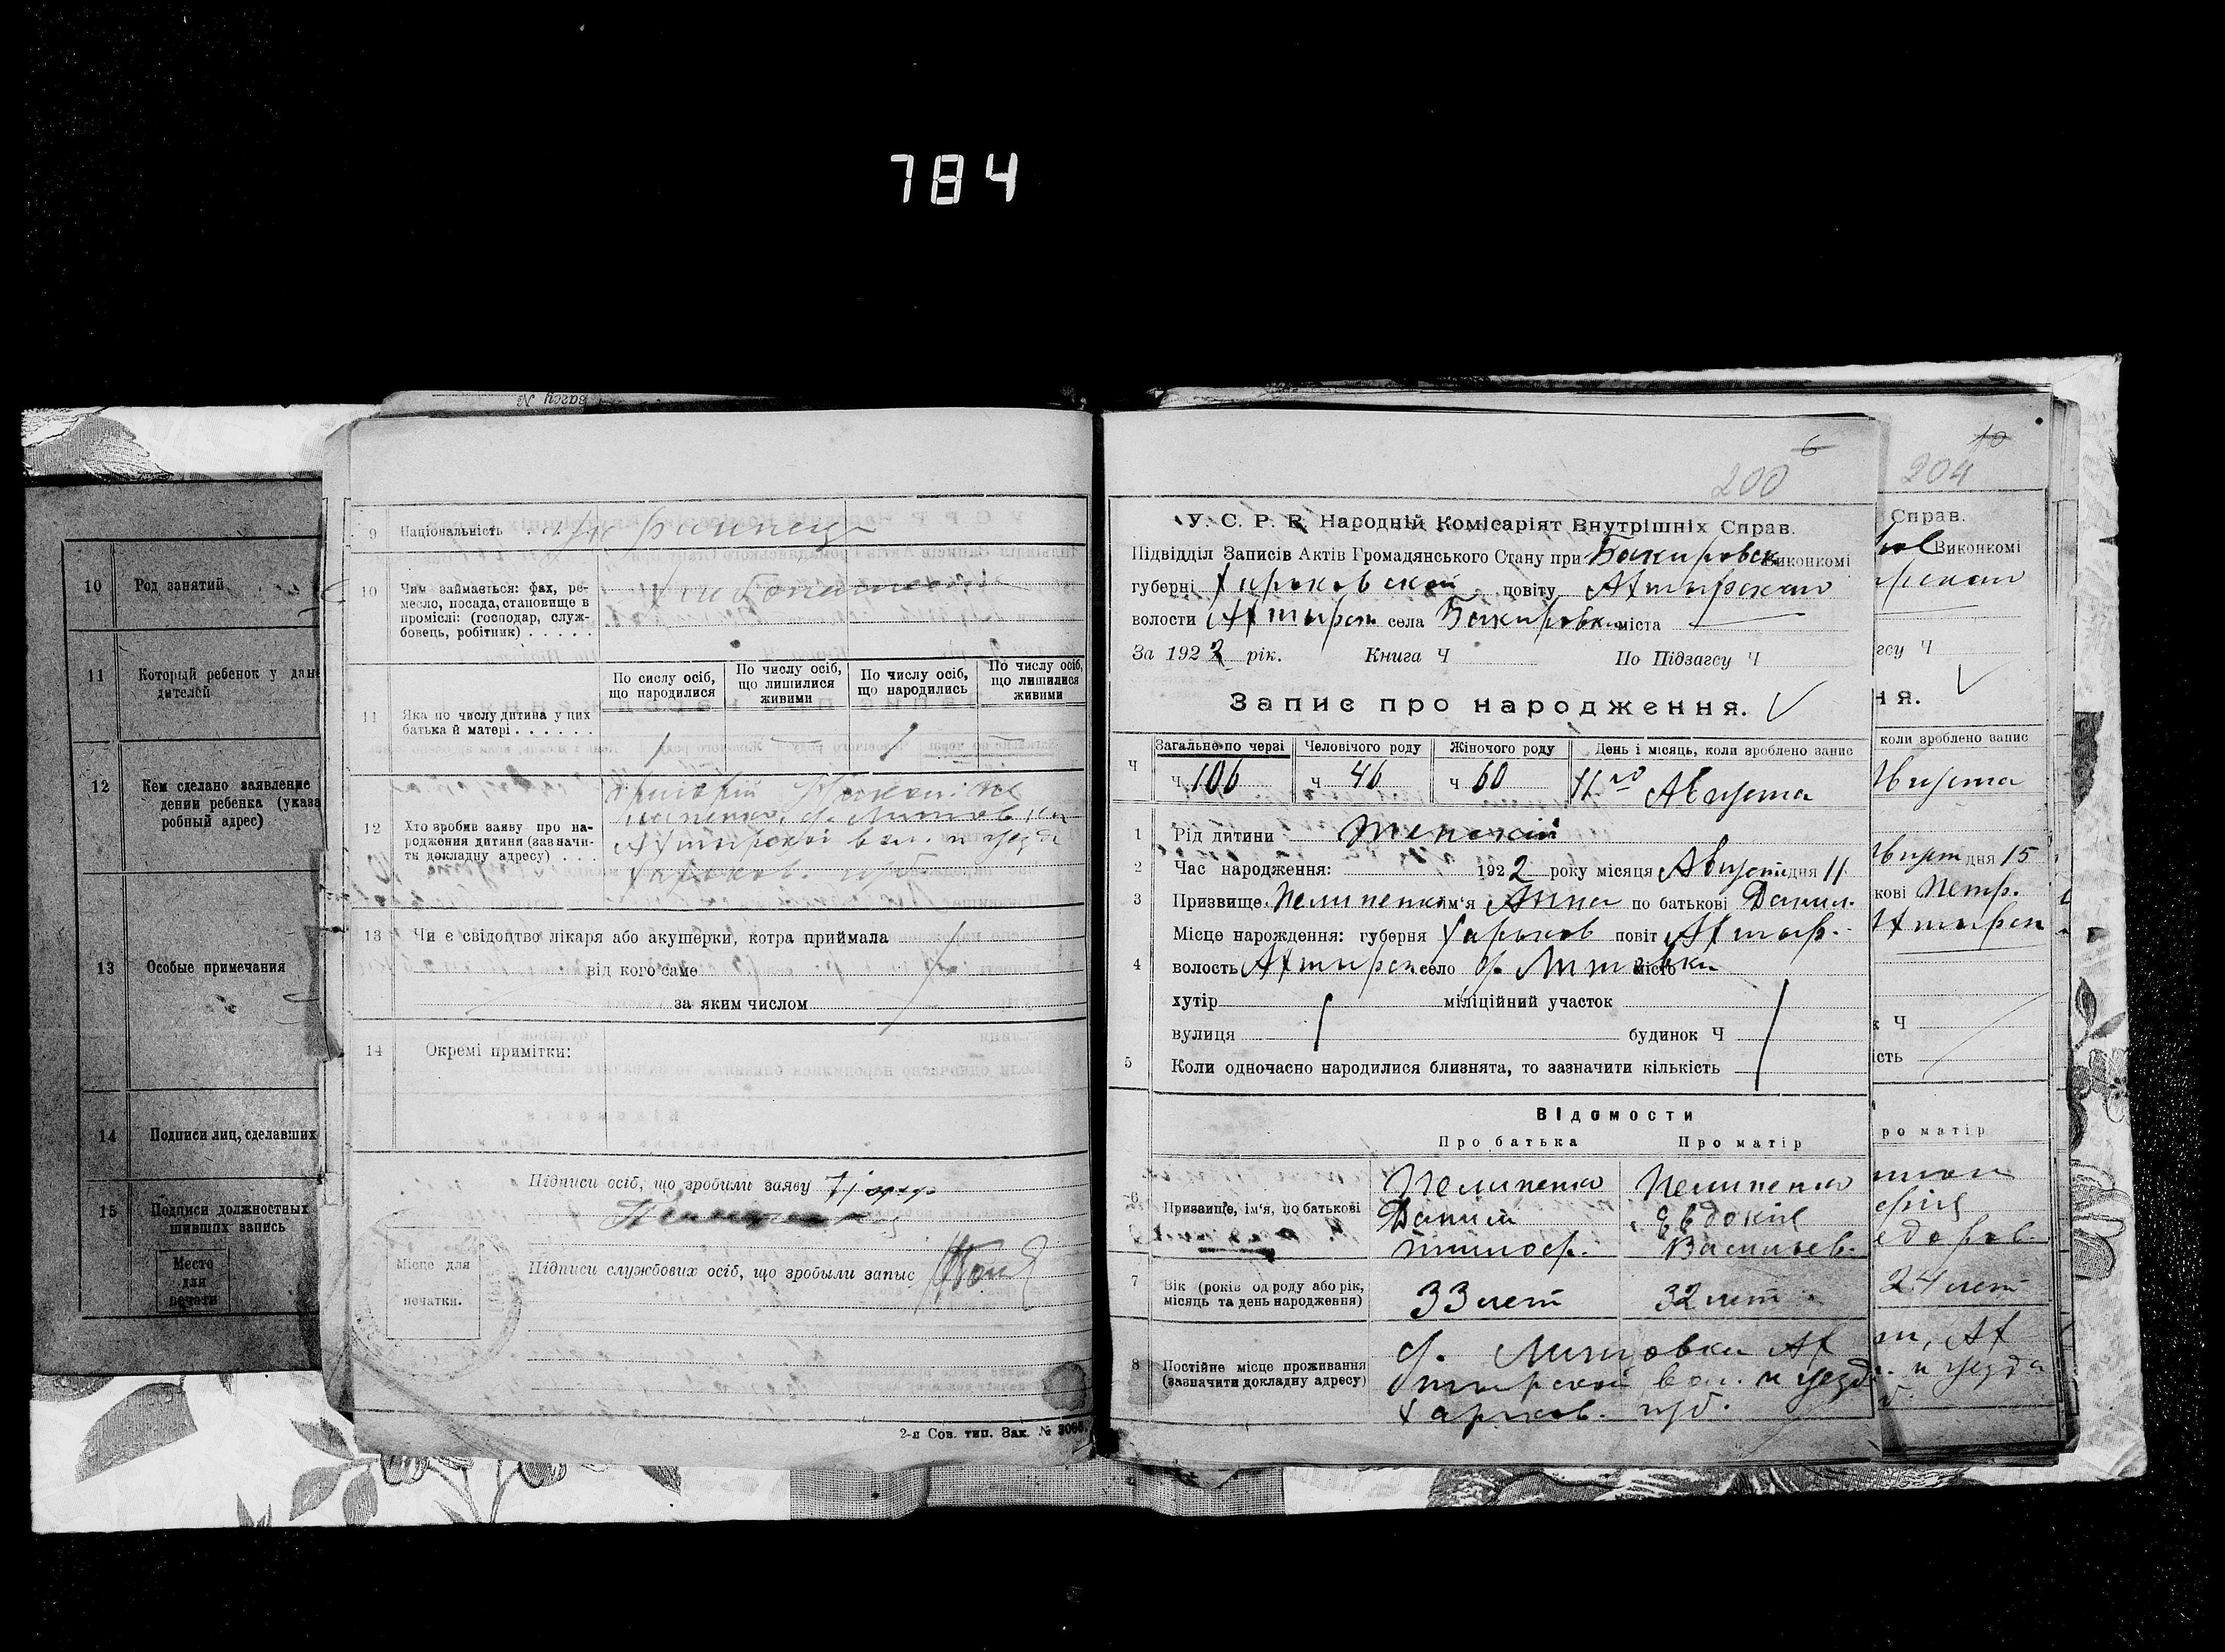 784
вагсу №
10 Род занятий
11 Который ребенок у дан
дителей
12 Кем сделано заявление
дении ребенка (указа
робный адрес)
13 Особые примечания
14 Подписи лиц, сделавших
15 Подписи должностных
шивших запись
Место
для
печати
9 Національність Украинец
10 Чим займається: фах, ре-
месло, посада, становище в
проміслі: (господар, служ-
бовець, робітник)
По сислу осіб, що народилися
По числу осіб, що лишилися живими
По числу осіб, що народились
По числу осіб, що лишилися живими
11 Яка по числу дитина у цих
батька й матері 1 — 1 —
12 Хто зробив заяву про на-
родження дитини (зазначи-
ти докладну адресу)
Григорий
Ахтырской вол. и уезда
Харьков. губ.
13 Чи є свідоцтво лікаря або акушерки, котра приймала
від кого саме
за яким числом
14 Окремі примітки:
Підписи осіб, що зробили заяву
Підписи службових осіб, що зробыли запыс
Місце для
печатки.
2-я Сов. тип. Зак. №
6
200
У. С. Р. Р. Народній Комісаріят Внутрішніх Справ.
Підвідділ Записів Актів Громадянського Стану при Бакировск Виконкомі
губерні Харьковской повіту Ахтырскаго
волости Ахтырск села Бакировки міста —
За 1922 рік. Книга Ч По Підзагсу Ч
Запис про народження.
Загальне по черзі Человічого роду Жіночого роду День і місяць, коли зроблено запис
Ч Ч 106 Ч 46 Ч 60 11го Августа
1 Рід дитини Женский
2 Час народження: 1922 року місяця Августа дня 11
3 Призвище Пелипенко ім'я Анна по батькові Данил.
4 Місце нарождення: губерня Харьков повіт Ахтыр.
волость Ахтырск. село д. Литовки місто
хутір міліційний участок
вулиця будинок Ч
5 Коли одночасно народилися близнята, то зазначити кількість
Відомости
Про батька Про матір
6 Призвище, ім'я, по батькові
Пелипенко Пелипенко
Данил Евдокия
Тимоф. Васильев.
7 Вік (років од роду або рік,
місяць та день народження) 33 лет 32 лет
8 Постійне місце проживання
(зазначити докладну адресу)
д. Литовки Ах
тырской вол. и уезда
Харьков. губ.
10
204
Справ.
Виконкомі
рскаго
гсу Ч
ня.
коли зроблено запис
Августа
Август дня 15
кові Петр.
Ахтырск
к Ч
ість
ро матір
едоров.
24 лет
и, Ах
. и уезда